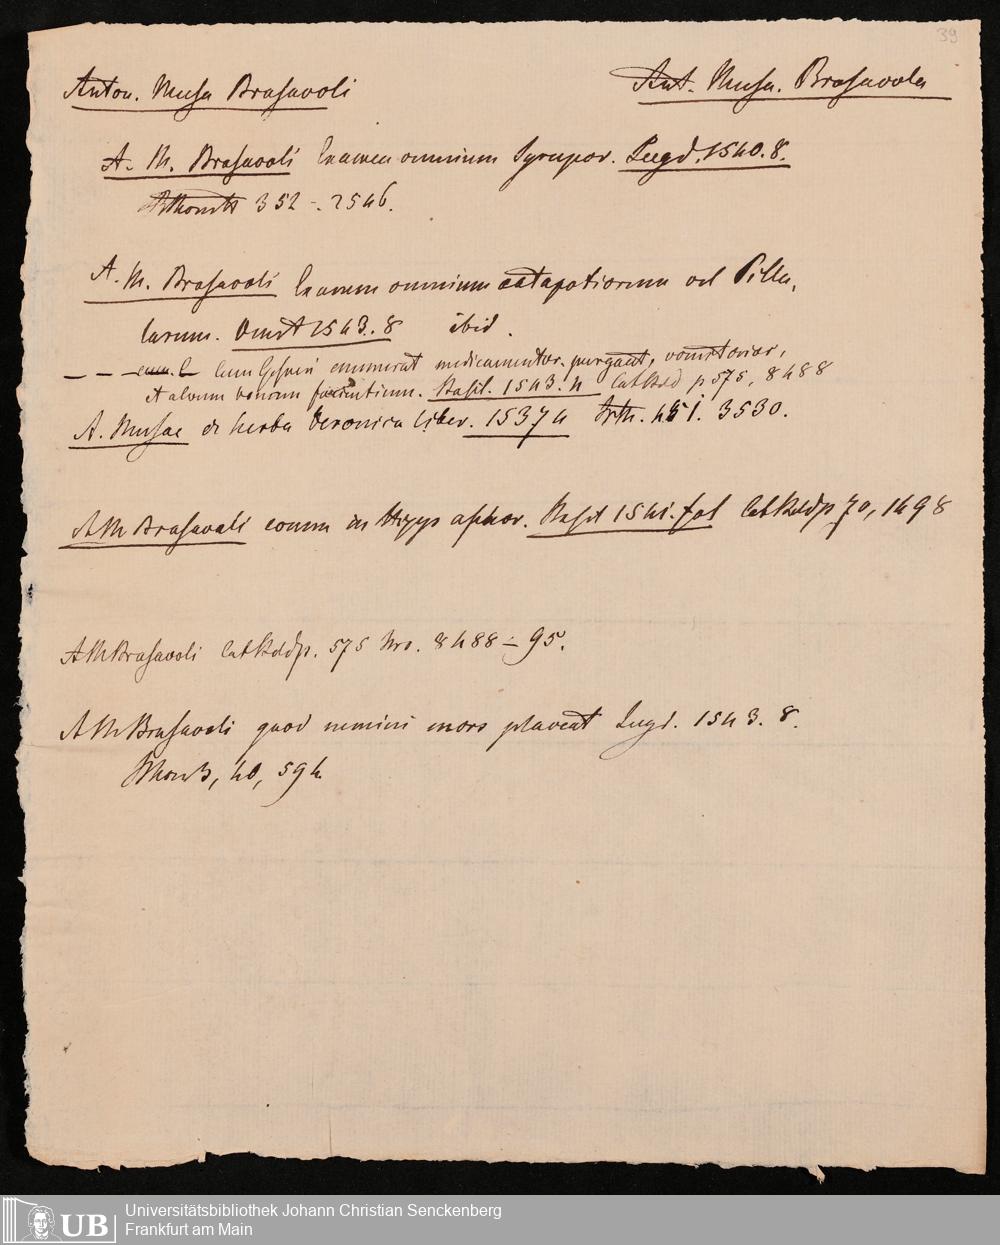 39
Anton. Musa Brasavoli Ant. Musa. Brasavola
A. M. Brasavoli Examen omnium Syrupor. Lugd. 1540. 8.
352 - 2546.
A. M. Brasavoli Examen omnium catapotiorum vel Pillu,
larum. 1543. 8 ibid.
– – – cum Gesneri enumerat medicamentor. purgant, vomitorior,
et alvum bonam facientium. Basil. 1543. 4 p 575, 8488
A. Musae de herba Veronica liber. 1537 4 3530.
AM Brasavoli comm in Hipp aphor. Basil 1541. fol 70, 1498
AM Brasavoli 575 Nro. 8488 – 95.
AM Brasavoli quod nemini mors placeat Lugd. 1543. 8.
40, 594
UB Universitätsbibliothek Johann Christian Senckenberg
Frankfurt am Main